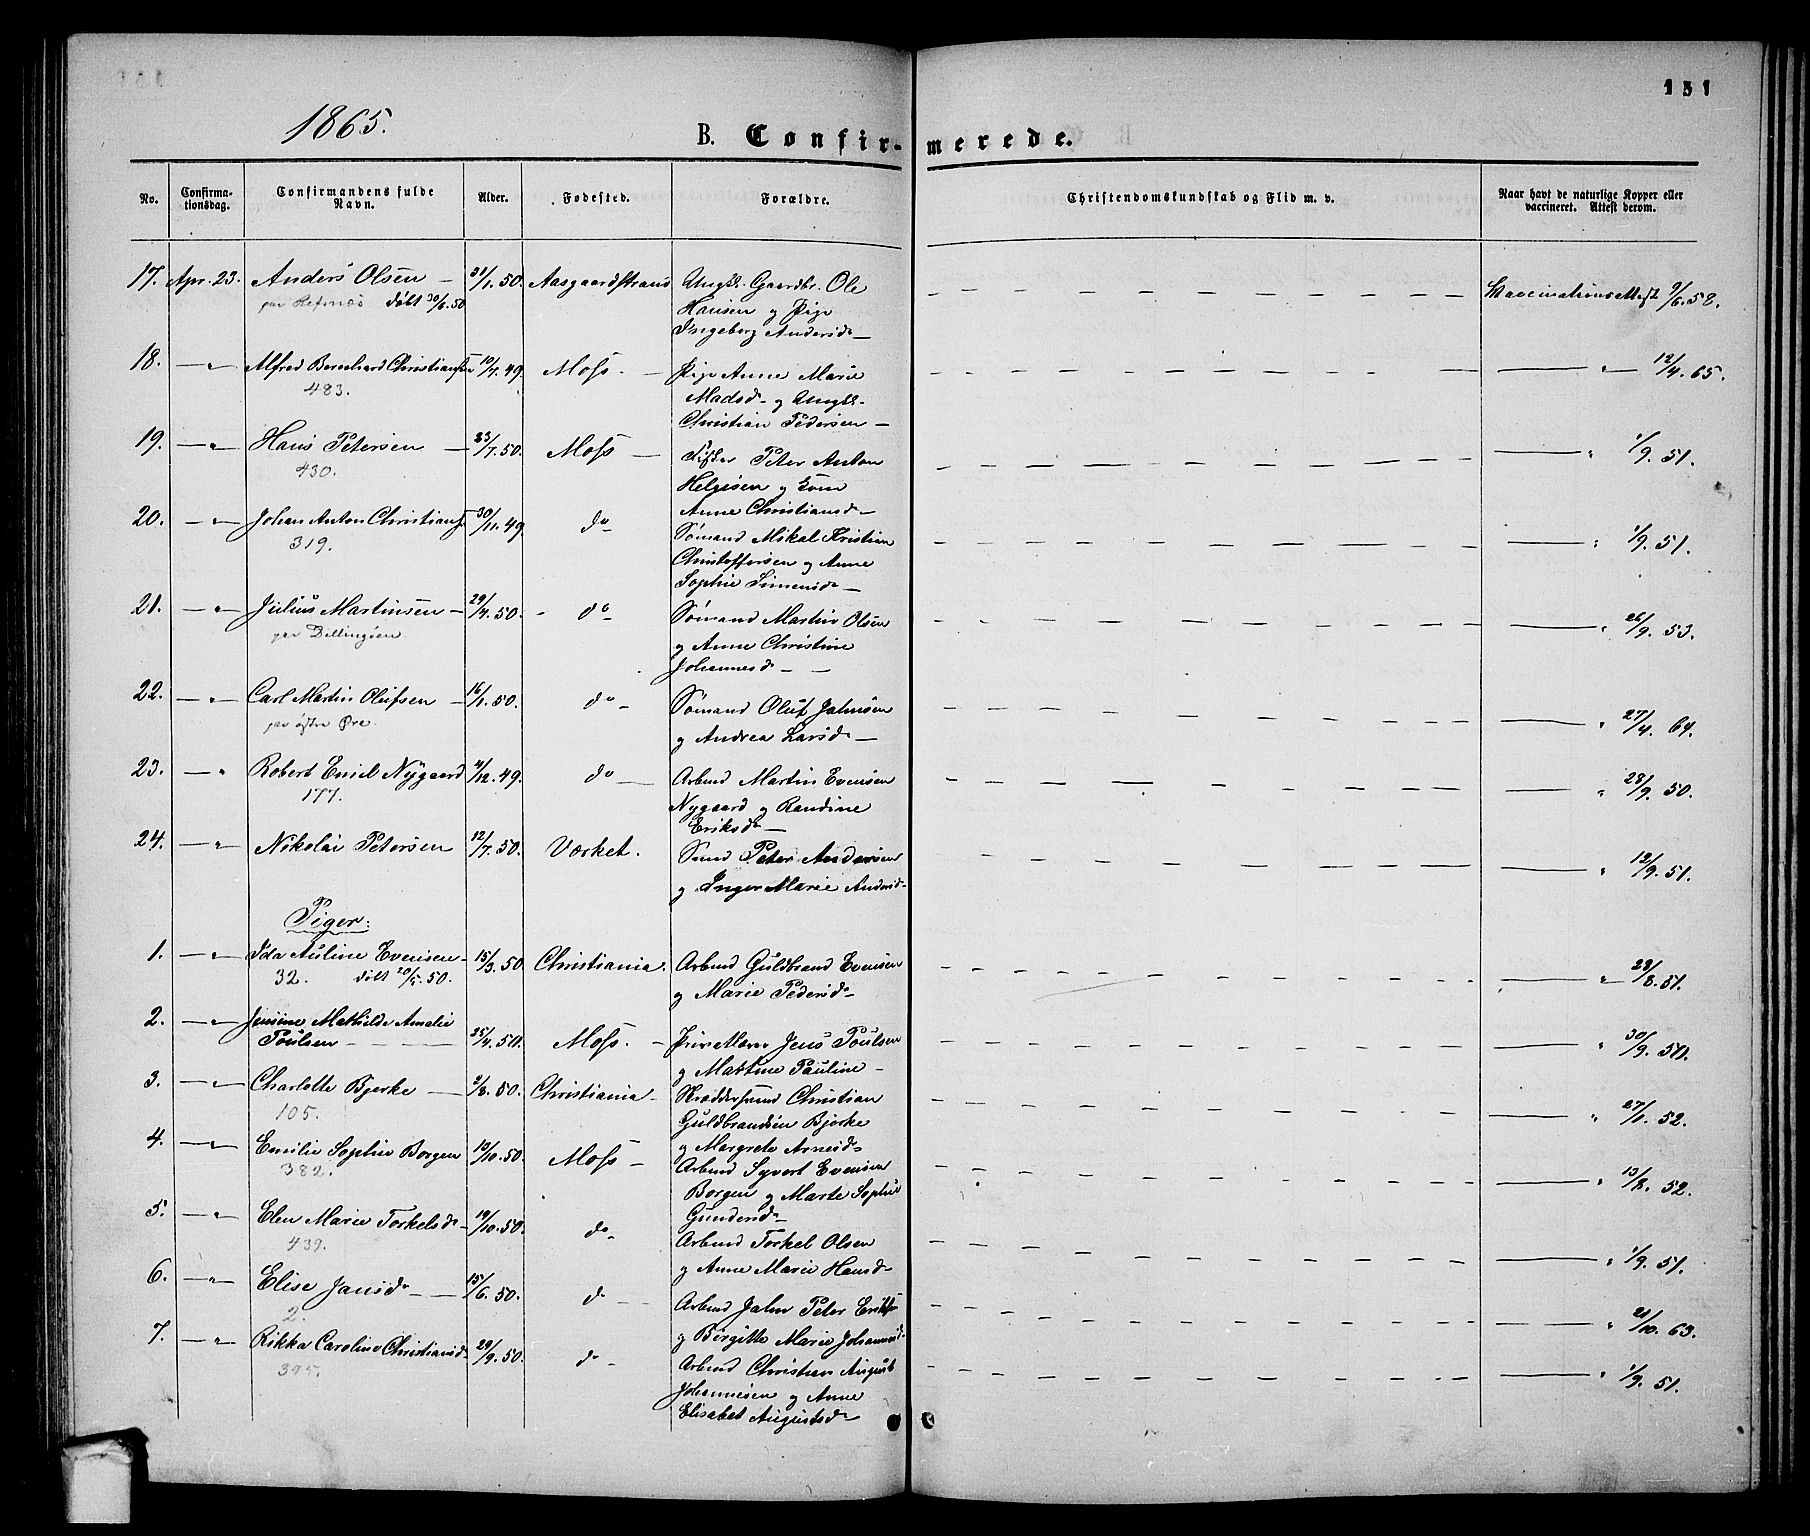 151
1865.
B. Confirmerede.
No.
Confirmationsdag.
Confirmandens fulde Navn.
Alder.
Fødested.
Forældre.
Christendomskundskab og Flid m. v.
Naar havt de naturlige Kopper eller vaccineret. Attest derom.
17. Apr. 23. Anders Olsen — 31/1. 50. Aasgaardstrand Ungk. Gaardbr. Ole — — — Vaccinationsattest 9/6. 58.
paa Refsnæs döbt 30/6. 50 Hansen og Pige
Ingeborg Andersd. —
18. — " — Alfred Bernhard Christians. 10/7. 49. Moss. — Pige Anne Marie — — — " 12/4. 65.
483. Madsd. og Ungk.
Christian Pedersen —
19. — " — Hans Petersen — 23/7. 50. Moss — Fisker Peter Anton — — — " 1/9. 51.
430. Helgesen og Kone
Anne Christiansd. —
20. — " — Johan Anton Christians. 30/11. 49. do Sömand Mikal Kristian — — — " 1/9. 51.
319. Christoffersen og Anne
Sophie Simensd. —
21. — " — Julius Martinsen — 29/4. 50. - do Sömand Martin Olsen — — — " 26/9. 53.
paa Dillingöen og Anne Christine
Johannesd. — —
22. — " — Carl Martin Olufsen — 16/1. 50. do - Sömand Oluf Jahnsen — — — " 27/4. 64.
paa östre Øre. og Andrea Larsd. —
23. — " Robert Emil Nygaard 4/12. 49. do — Arbmd Martin Evensen — — — " 28/9. 50.
177. Nygaard og Randine
Eriksd. —
24. — " — Nikolai Petersen 12/7. 50. Værket. Smed Peter Andersen — — — " 12/9. 51.
og Inger Marie Andersd.
Piger:
1. — " — Ida Auline Evensen 15/3. 50. Christiania. Arbmd Guldbrand Evensen — — — " 23/8. 51.
32. döbt 20/5. 50. og Marie Pedersd.
2. — " — Jensine Mathilde Amalie
Poulsen — — — 25/4. 50. Moss. — Jens Poulsen — — — " 30/9. 50.
og Martine Pauline —
3. — " — Charlotte Bjerke — 2/8. 50. Christiania — Skræddersvend Christian — — — " 27/1. 52.
105. Guldbrandsen Bjerke
og Margrete Arnesd.
4. — " — Emilie Sophie Borgen 13/10. 50. Moss — Arbmd Syvert Evensen — — — " 13/8. 52.
382. Borgen og Marte Sophie
Gundersd.
5. — " — Elen Marie Torkelsd. 19/10. 50. do - Arbmd Torkel Olsen — — — " 1/9. 51.
439. og Anne Marie Hansd.
6. — " — Elise Jansd. — — 15/6. 50. do - - Arbmd Jahn Peter Eriks. — — — " 21/10. 63.
2. og Birgitte Marie Johannesd.
7. — " — Rikka Caroline Christiansd. 29/9. 50. do - Arbmd Christian August — — — " 1/9. 51.
395. Johannesen og Anne
Elisabet Augustsd.